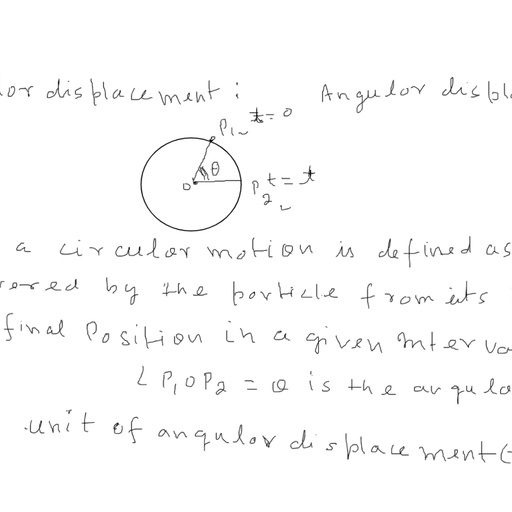 or displacement : Angular displ
P1 t = 0
θ
O P2 t = t
a circular motion is defined as
ered by the particle from its
final Position in a given interva
∠ P1OP2 = θ is the angula
unit of angular displacement(